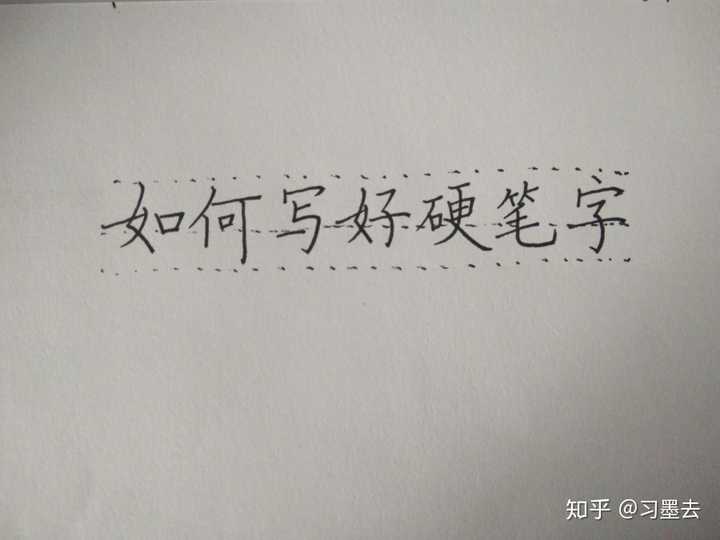 如何写好硬笔字
知乎 @习墨去